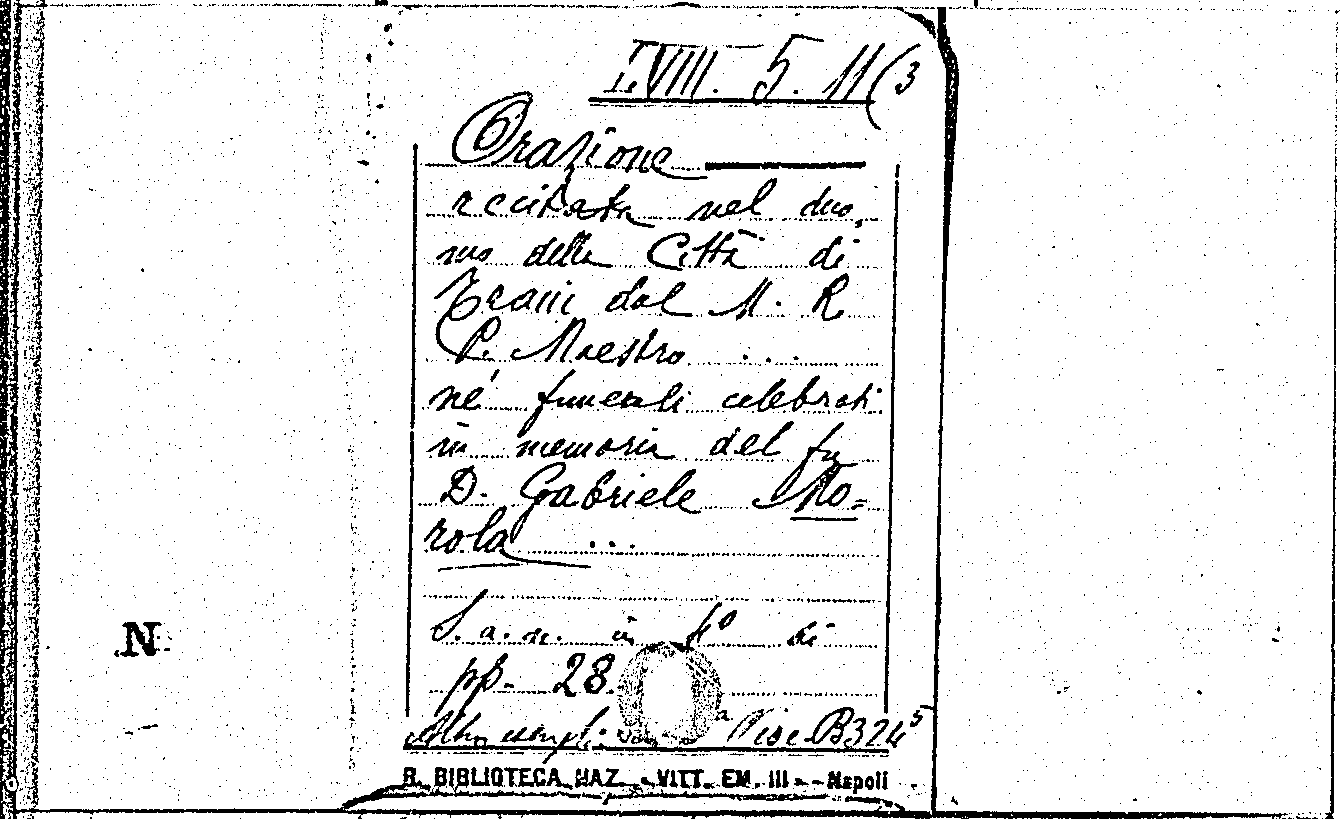 L.VIII. 5. 11(3
Orazione
recitata nel duo,
mo della Città di
Trani dal M. R
P. Maestro ...
né funerali celebrati
in memoria del fu
D. Gabriele Mo=
rola ...
S. a. n. in 4º di
N
pp. 28.
Altro esempl: Misc. B324⁵
R. BIBLIOTECA NAZ. - VITT. EM. III - - Napoli